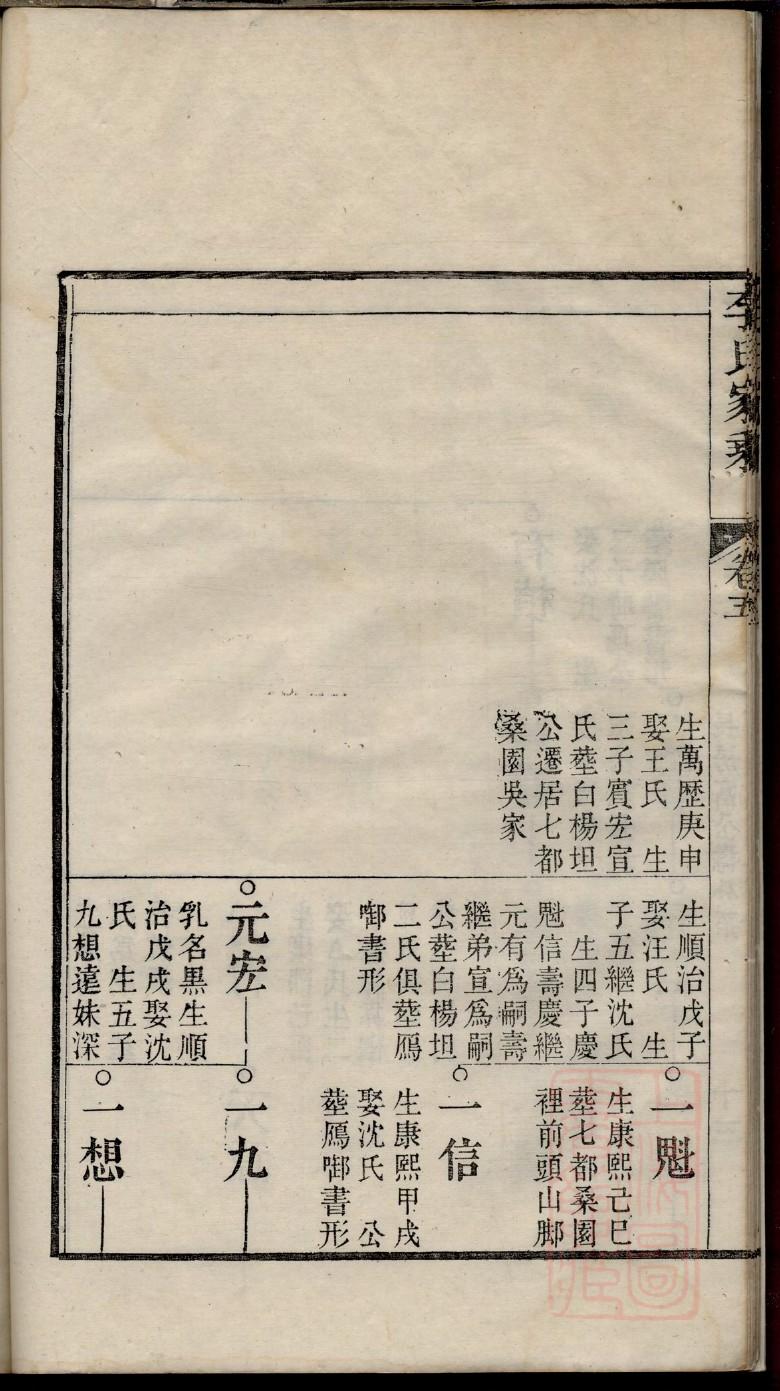 李氏家乘
卷五
生萬歷庚申
娶王氏　生
三子賓宏宣
氏塟白楊坦
公遷居七都
桑園吳家
生順治戊子
娶汪氏　生
子五繼沈氏
　生四子慶
魁信壽慶繼
元有為嗣壽
繼弟宣爲嗣
公塟白楊坦
二氏俱塟鴈
啣書形
元宏
乳名黑生順
治戊戌娶沈
氏　生五子
九想達妹深
一魁
生康熙己巳
塟七都桑園
裡前頭山脚
一信
生康熙甲戌
娶沈氏　公
塟鴈啣書形
一九
一想